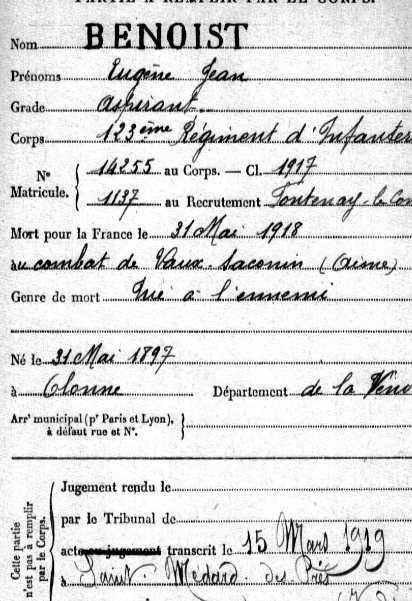 PARTIE A REMPLIR PAR LE CORPS.
Nom BENOIST
Prénoms Eugène Jean
Grade aspirant.
Corps 123ème Régiment d'Infanter
N° Matricule. { 14255 au Corps. — Cl. 1917
1137 au Recrutement Fontenay-le-Com
Mort pour la France le 31 Mai 1918
au combat de Vaux-Saconin (Aisne)
Genre de mort Tué à l'ennemi
Né le 31 Mai 1897
à Olonne Département de la Vend
Arrt municipal (pr Paris et Lyon), à défaut rue et N°. }
Cette partie n'est pas à remplir par le Corps.
Jugement rendu le
par le Tribunal de
acte ou jugement transcrit le 15 Mars 1919
à Saint-Médard-des-Prés